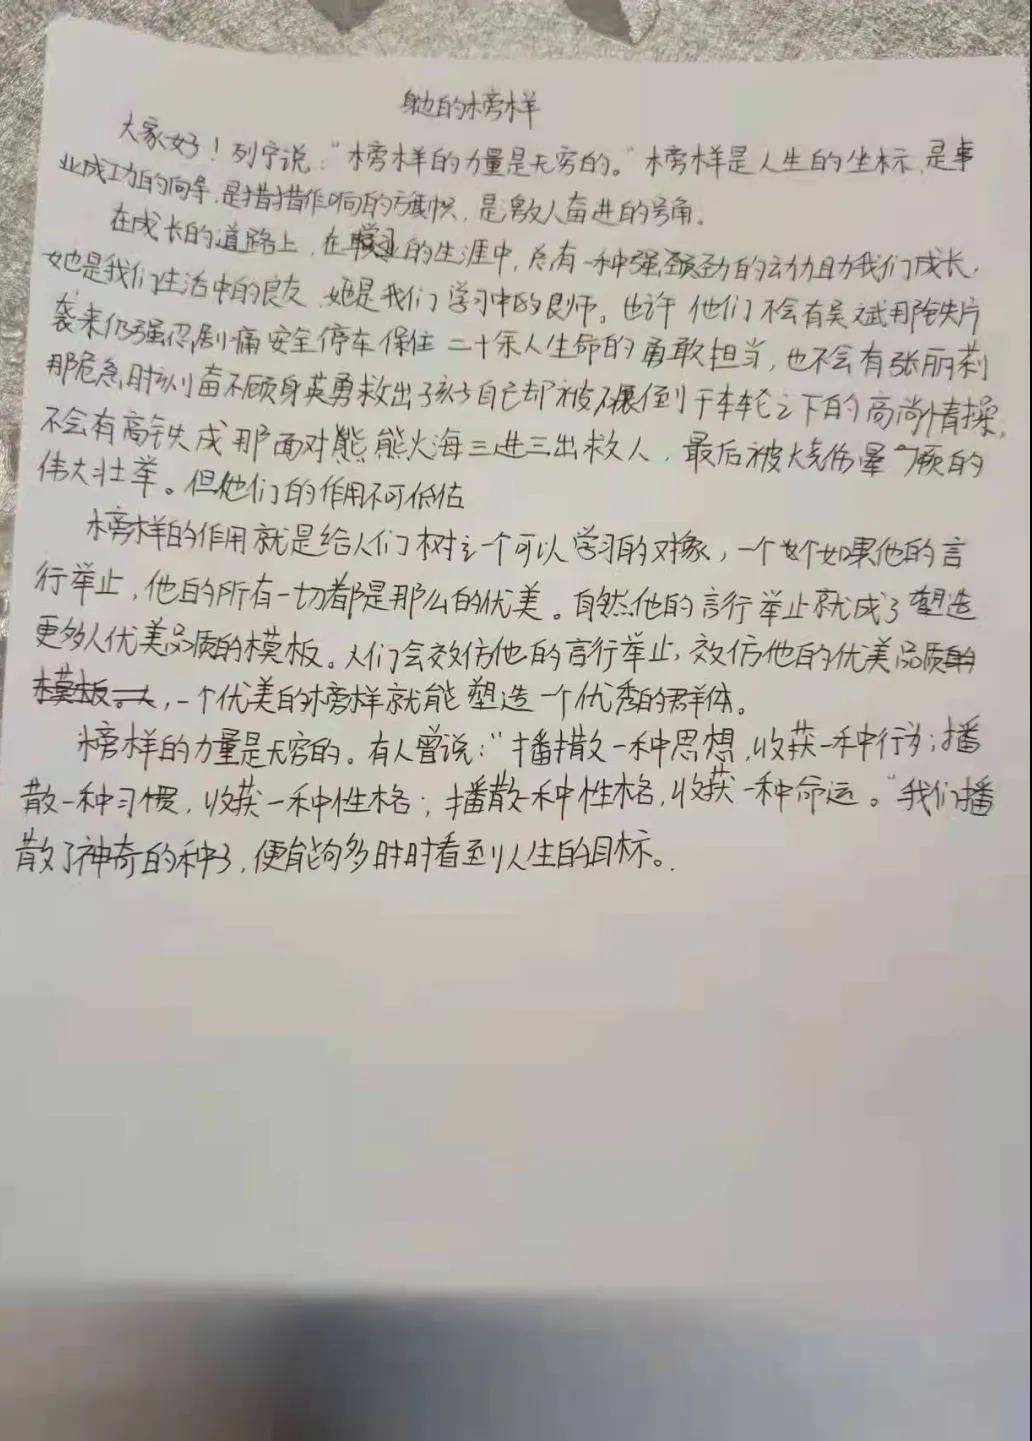 身边的榜样
大家好！列宁说："榜样的力量是无穷的。"榜样是人生的坐标,是事
业成功的向导,是猎猎作响的旗帜,是激人奋进的号角。
在成长的道路上,在学业的生涯中,总有一种强劲的动力助力我们成长,
她是我们生活中的良友,她是我们学习中的良师。也许他们不会有吴斌那铁片
袭来仍强忍剧痛安全停车保住二十余人生命的勇敢担当,也不会有张丽莉
那危急时刻奋不顾身英勇救出孩子自己却被碾倒于车轮之下的高尚情操,
不会有高铁成那面对熊熊火海三进三出救人,最后被烧伤晕厥的
伟大壮举。但他们的作用不可低估
榜样的作用就是给人们树立一个可以学习的对象,一个如果他的言
行举止,他的所有一切都是那么的优美。自然他的言行举止就成了塑造
更多人优美品质的模板。人们会效仿他的言行举止,效仿他的优美品质
,一个优美的榜样就能塑造一个优秀的群体。
榜样的力量是无穷的。有人曾说："播撒一种思想,收获一种行为;播
散一种习惯,收获一种性格;播散一种性格,收获一种命运。"我们播
散了神奇的种子,便能够多时时看到人生的目标。